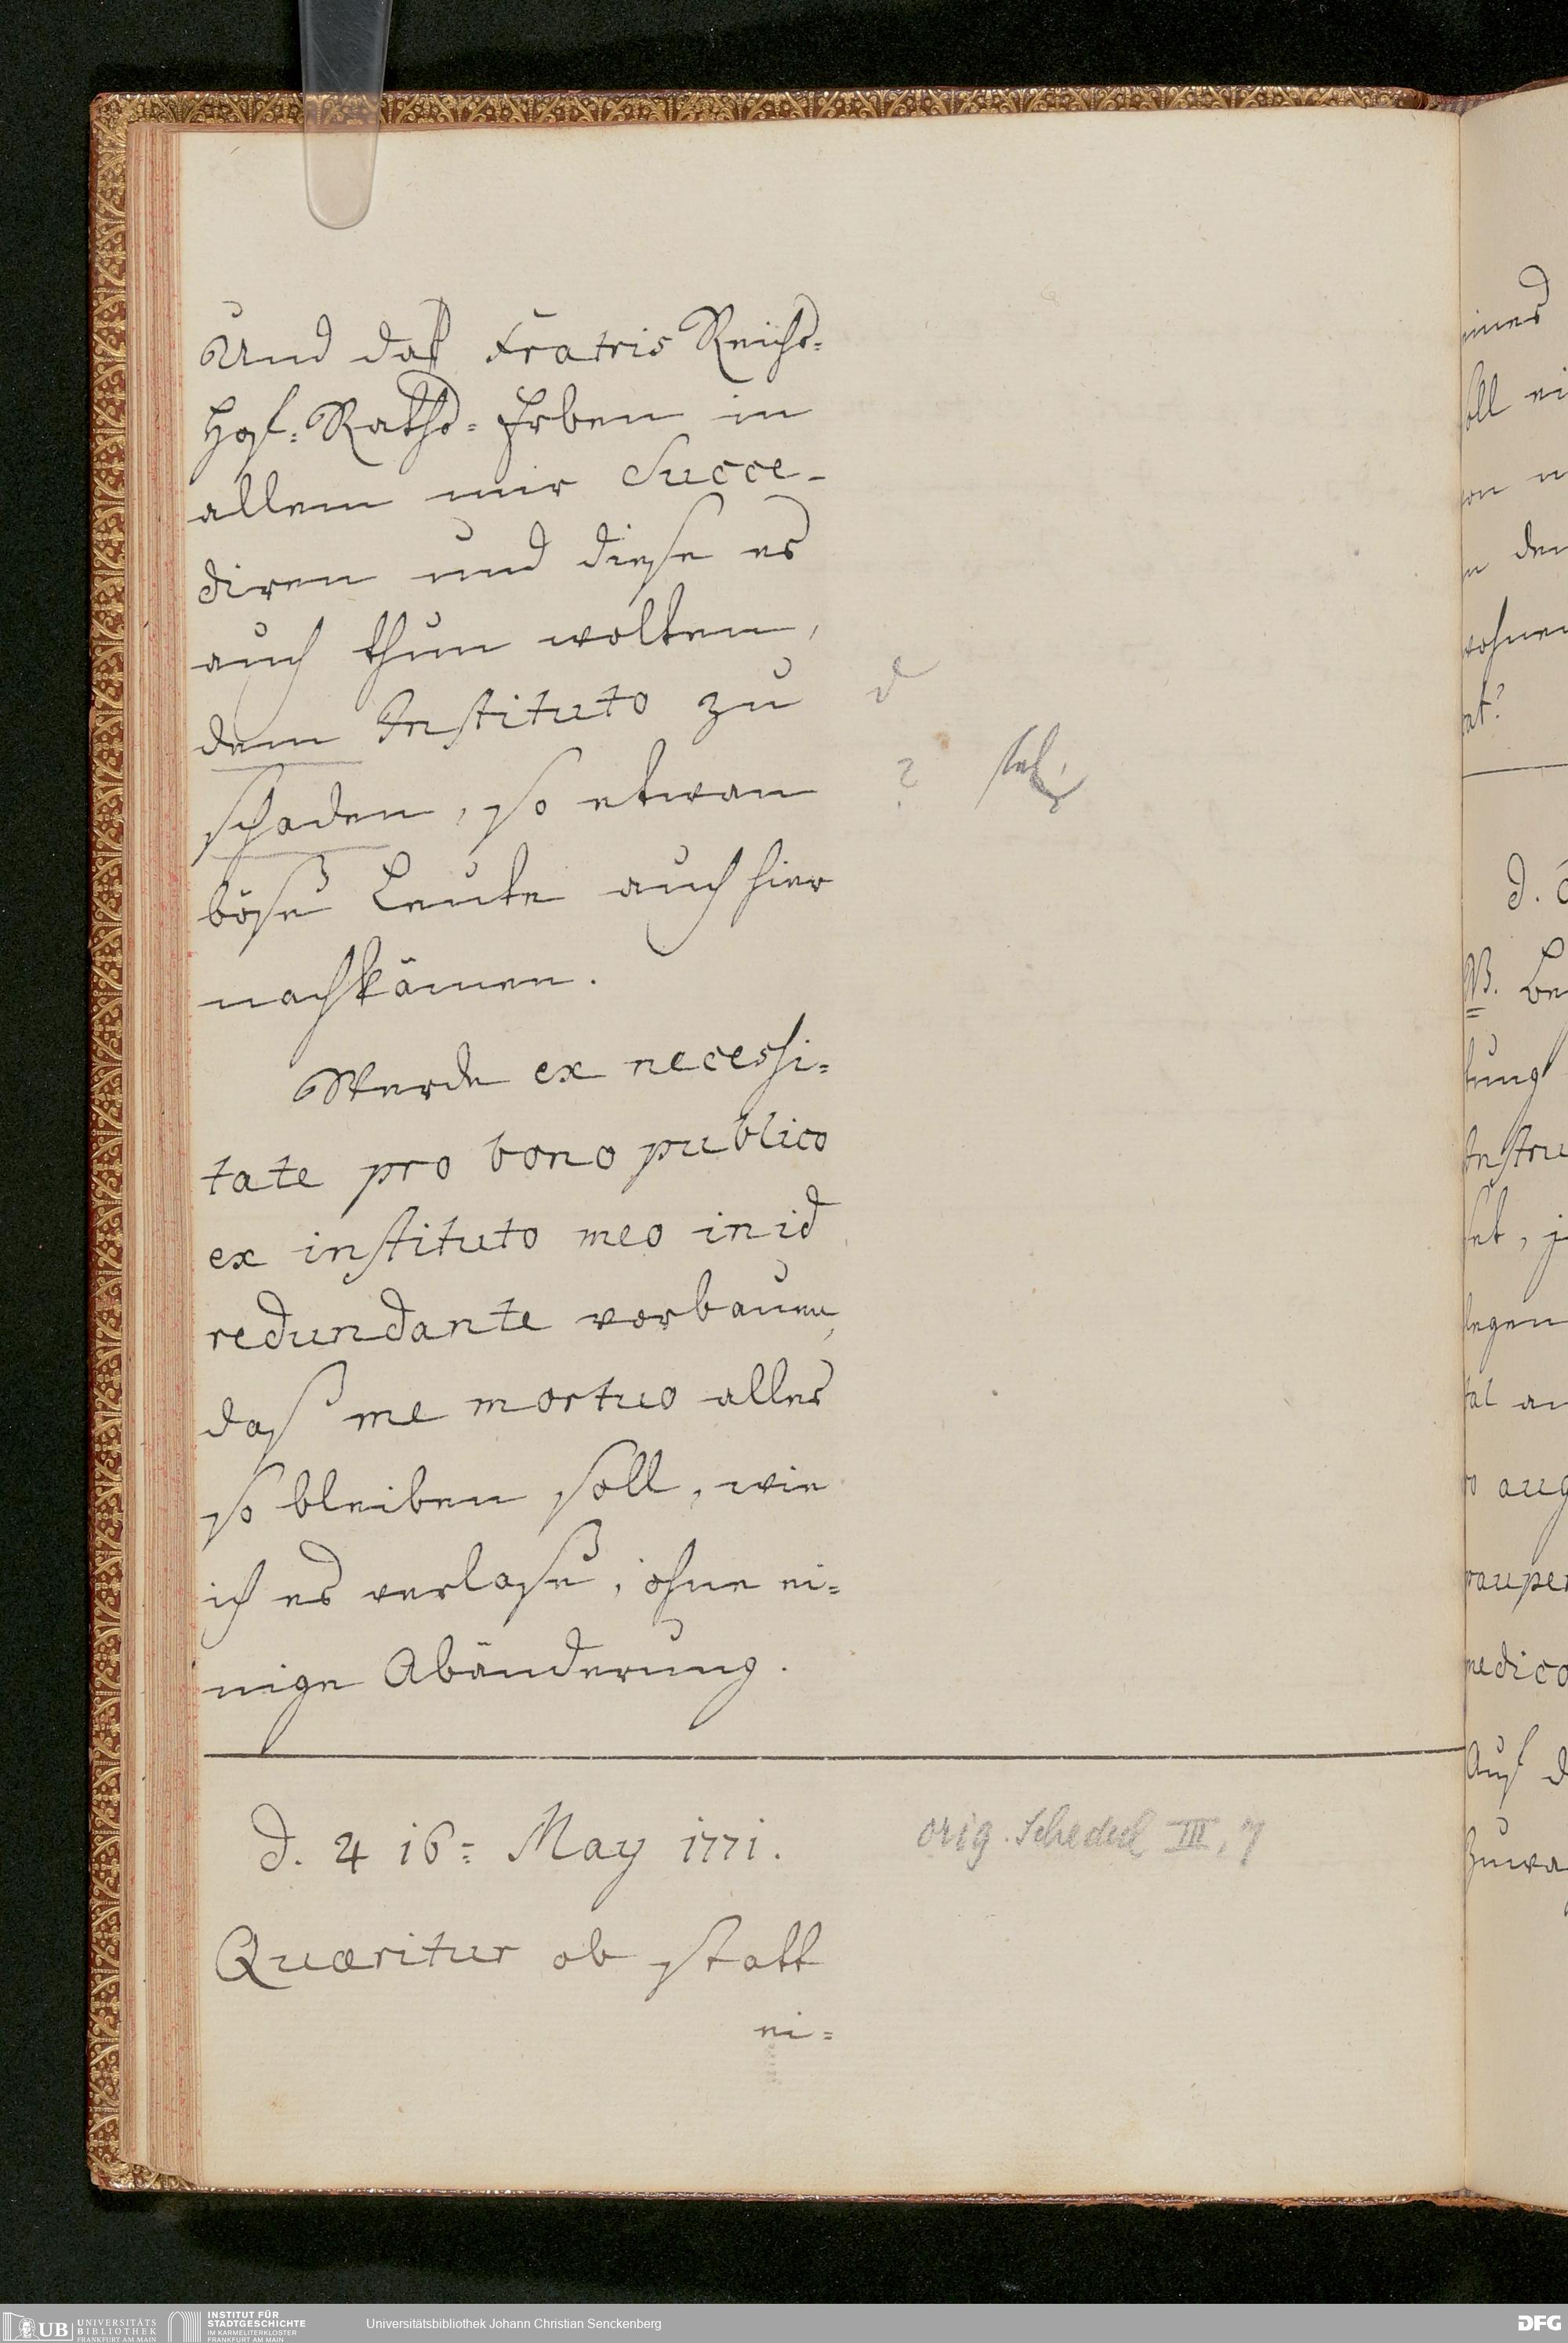 Und daß Fratris Reichs=
Hof=Raths=Erben in
allem mir Succe-
diren und diese es
auch thun wolten,
dem Instituto zu
schaden, so etwan
böse Leute auch hier
nachkämen.
Werde ex necessi=
tate pro bono publico
ex instituto meo in id
redundante vorbauen,
daß me mortuo alles
so bleiben soll, wie
ich es verlaße, ohne ei=
nige Abänderung.
d. ♃ 16= May 1771.
orig. Schedul III, 7
Quæritur ob statt
ei=
?
eines
soll ei
den
wohnen
at?
NB. Be
tung
Instru
legen
tal an
pauper
medico
Auf d
UNIVERSITÄTS
BIBLIOTHEK
FRANKFURT AM MAIN
UB
INSTITUT FÜR
STADTGESCHICHTE
IM KARMELITERKLOSTER
FRANKFURT AM MAIN
Universitätsbibliothek Johann Christian Senckenberg
DFG